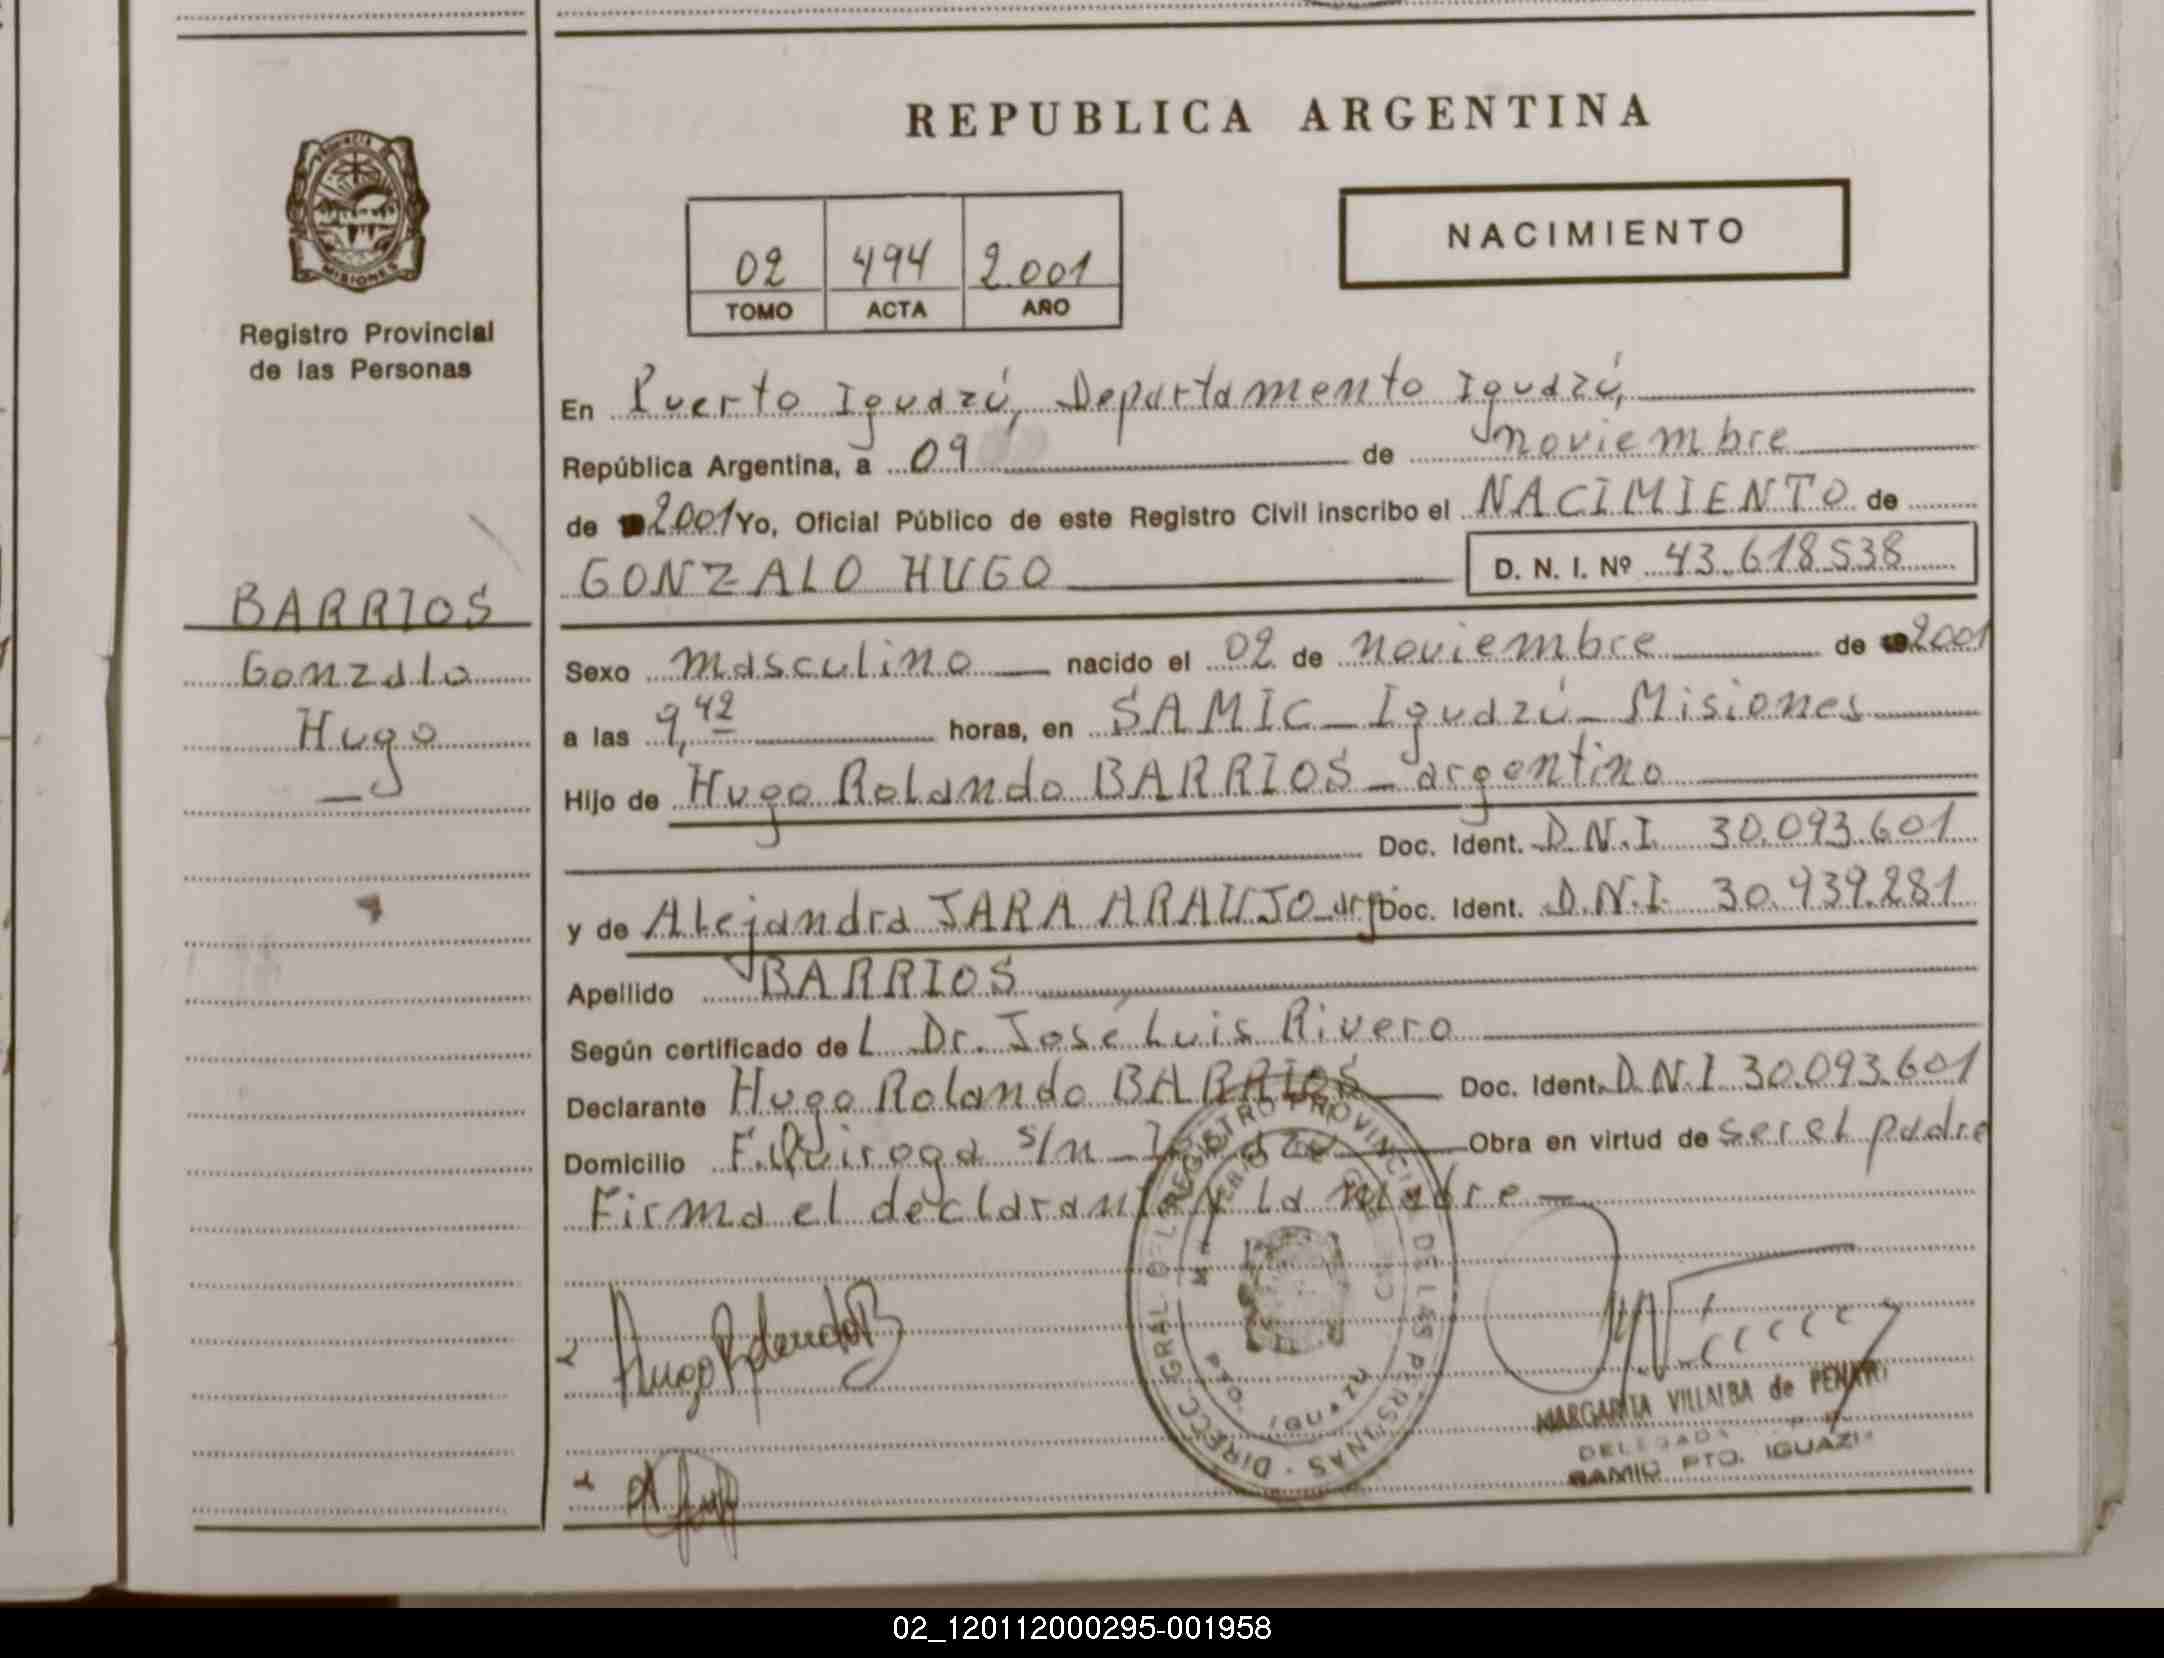 REPUBLICA ARGENTINA
PROVINCIA DE
MISIONES
Registro Provincial
de las Personas
BARRIOS
Gonzalo
Hugo
02 494 2.001
TOMO ACTA AÑO
NACIMIENTO
En Puerto Iguazú, Departamento Iguazú,
República Argentina, a 09 de noviembre
de 2001 Yo, Oficial Público de este Registro Civil inscribo el NACIMIENTO de
GONZALO HUGO D. N. I. Nº 43.618.538
Sexo masculino nacido el 02 de noviembre de 2001
a las 9,42 horas, en SAMIC - Iguazú - Misiones
Hijo de Hugo Rolando BARRIOS - argentino
Doc. Ident. D.N.I. 30.093.601
y de Alejandra JARA ARAUJO - arg Doc. Ident. D.N.I. 30.939.281
Apellido BARRIOS
Según certificado del Dr. José Luis Rivero
Declarante Hugo Rolando BARRIOS Doc. Ident. D.N.I 30.093.601
Domicilio F. Quiroga s/n - Obra en virtud de ser el padre
Firma el declarante y la madre
Hugo Rolando B
DIRECC. GRAL DEL REGISTRO PROVINCIAL DE LAS PERSONAS
PTO. IGUAZU
MARGARITA VILLALBA de
DELEGADA
SAMIC PTO. IGUAZU
02_120112000295-001958